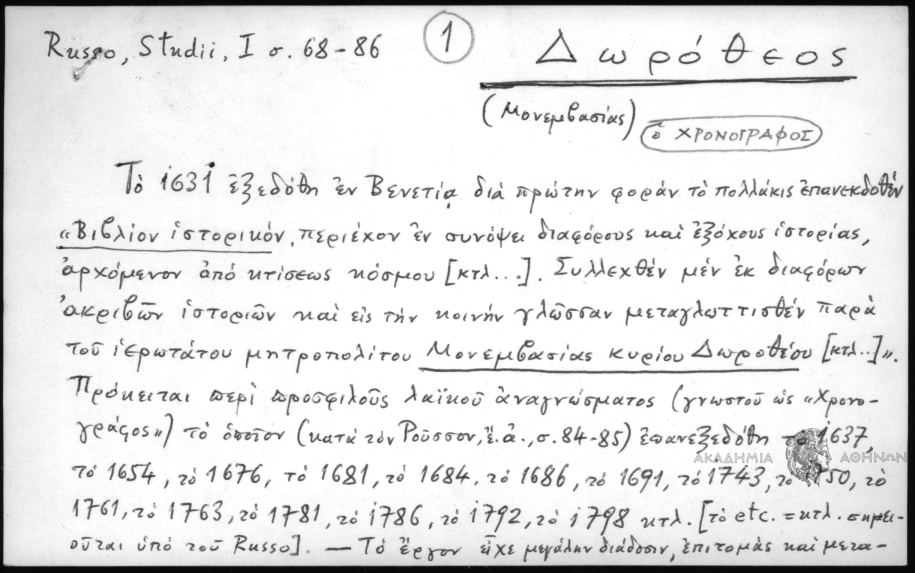 Russo, Studii, I σ. 68-86
1
Δωρόθεος
(Μονεμβασίας)
ὁ ΧΡΟΝΟΓΡΑΦΟΣ
Τὸ 1631 ἐξεδόθη ἐν Βενετίᾳ διὰ πρώτην φορὰν τὸ πολλάκις ἐπανεκδοθὲν
«Βιβλίον ἱστορικόν, περιέχον ἐν συνόψει διαφόρους καὶ ἐξόχους ἱστορίας,
ἀρχόμενον ἀπὸ κτίσεως κόσμου [κτλ...]. Συλλεχθὲν μὲν ἐκ διαφόρων
ἀκριβῶν ἱστοριῶν καὶ εἰς τὴν κοινὴν γλῶσσαν μεταγλωττισθὲν παρὰ
τοῦ ἱερωτάτου μητροπολίτου Μονεμβασίας κυρίου Δωροθέου [κτλ..]».
Πρόκειται περὶ προσφιλοῦς λαϊκοῦ ἀναγνώσματος (γνωστοῦ ὡς «Χρονο-
γράφος») τὸ ὁποῖον (κατὰ τὸν Ροῦσσον, ἔ.ἀ., σ. 84-85) ἐπανεξεδόθη τὸ 1637,
τὸ 1654, τὸ 1676, τὸ 1681, τὸ 1684, τὸ 1686, τὸ 1691, τὸ 1743, τὸ 1750, τὸ
1761, τὸ 1763, τὸ 1781, τὸ 1786, τὸ 1792, τὸ 1798 κτλ. [τὸ etc. = κτλ. σημει-
οῦται ὑπὸ τοῦ Russo]. — Τὸ ἔργον εἶχε μεγάλην διάδοσιν, ἐπιτομὰς καὶ μετα-
ΑΚΑΔΗΜΙΑ ΑΘΗΝΩΝ